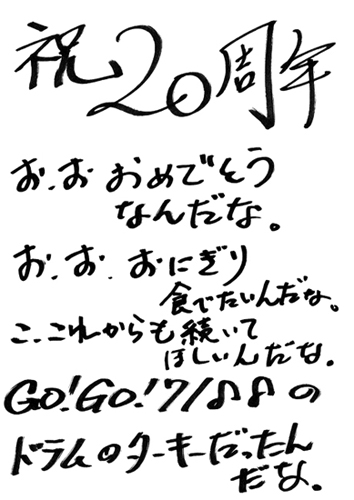 祝20周年
お、お おめでそう
なんだな。
お、お、おにぎり
食べたいんだな。
こ、これからも続いて
ほしいんだな。
GO!GO!7188の
ドラムのターキーだったん
だな。